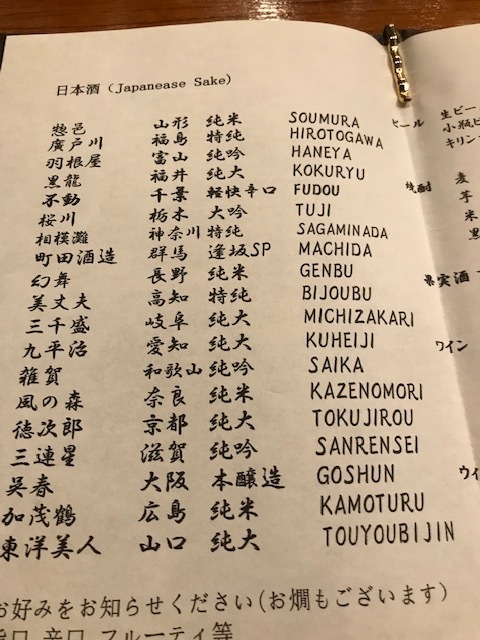 日本酒 (Japanease Sake)
惣邑 山形 純米 SOUMURA
廣戸川 福島 特純 HIROTOGAWA
羽根屋 富山 純吟 HANEYA
黒龍 福井 純大 KOKURYU
不動 千葉 軽快辛口 FUDOU
桜川 栃木 大吟 TUJI
相模灘 神奈川 特純 SAGAMINADA
町田酒造 群馬 逢坂SP MACHIDA
幻舞 長野 純米 GENBU
美丈夫 高知 特純 BIJOUBU
三千盛 岐阜 純大 MICHIZAKARI
九平治 愛知 純大 KUHEIJI
雑賀 和歌山 純吟 SAIKA
風の森 奈良 純米 KAZENOMORI
徳次郎 京都 純大 TOKUJIROU
三連星 滋賀 純吟 SANRENSEI
呉春 大阪 本醸造 GOSHUN
加茂鶴 広島 純米 KAMOTURU
東洋美人 山口 純大 TOUYOUBIJIN
お好みをお知らせください(お燗もございます)
辛口 フルーティ等
ビール
生ビー
小瓶ビ
キリン
焼酎
麦
芋
米
黒
果実酒
ワイン
ウイ